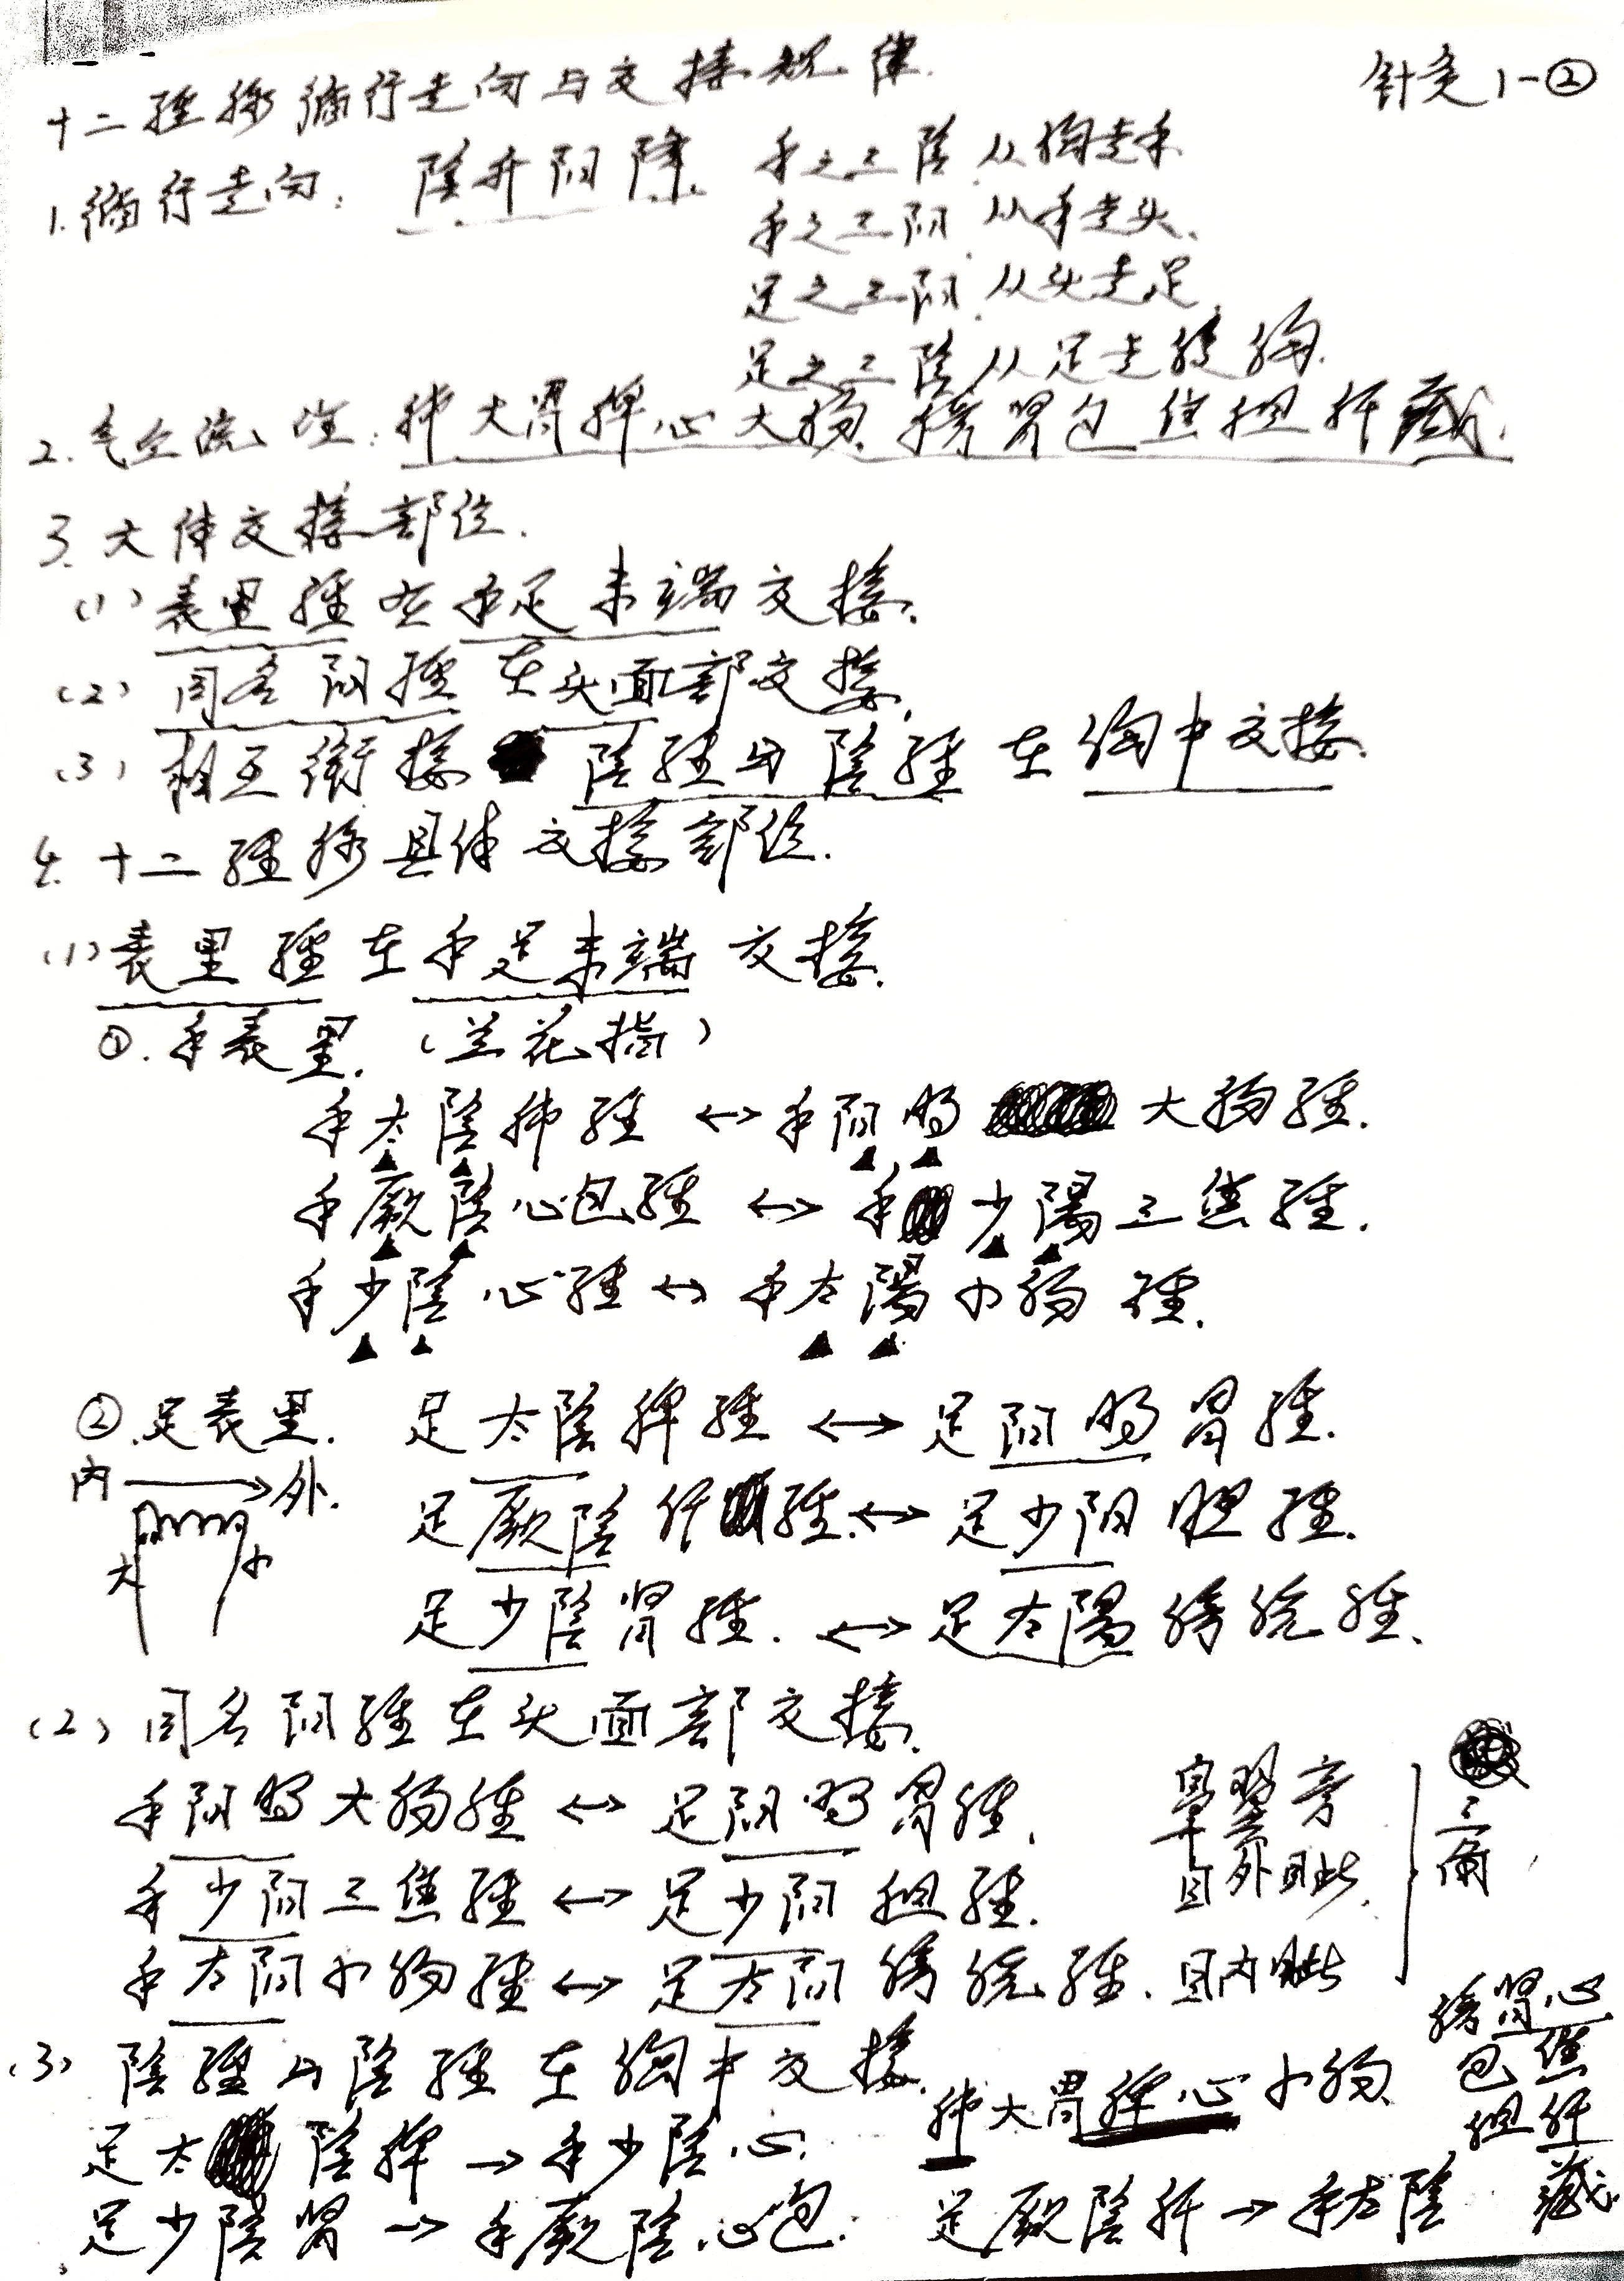 十二經脉循行走向与交接规律.
针灸1-②
1.循行走向: 陰升阳降. 手之三陰从胸走手
手之三阳从手走头.
足之三阳从头走足.
足之三陰从足走腹胸.
2.气血流注:肺大胃脾心大肠.膀肾包焦担肝藏.
3.大体交接部位.
(1)表里經在手足末端交接.
(2)同名阳經在头面部交接.
(3)相互衔接 陰經与陰經在胸中交接.
4.十二經脉具体交接部位.
(1)表里經在手足末端交接.
①.手表里.(兰花指)
手太陰肺經↔手阳明 大肠經.
手厥陰心包經↔手少陽三焦經.
手少陰心經↔手太陽小肠經.
②.足表里. 足太陰脾經↔足阳明胃經.
内→外. 足厥陰肝經.↔足少阳胆經.
大 小
足少陰肾經.↔足太陽膀胱經.
(2)同名阳經在头面部交接.
手阳明大肠經↔足阳明胃經. 鼻翼旁
手少阳三焦經↔足少阳担經. 目外眦.
手太阳小肠經↔足太阳膀胱經.目内眦
三角
(3)陰經与陰經在胸中交接.
肺大胃脾心小肠.
膀肾心
包焦
担肝
藏.
足太陰脾→手少陰心.
足少陰肾→手厥陰心包. 足厥陰肝→手太陰